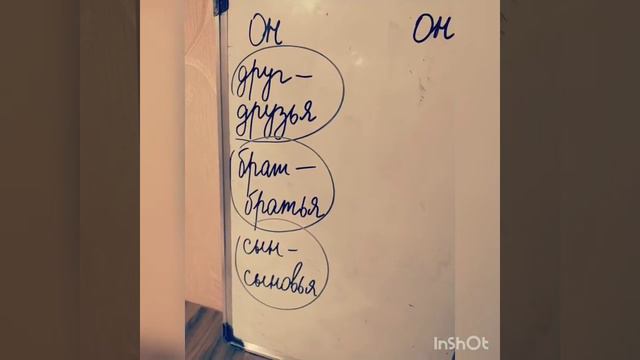 Он Он
друг –
друзья
брат –
братья
сын –
сыновья
InShOt